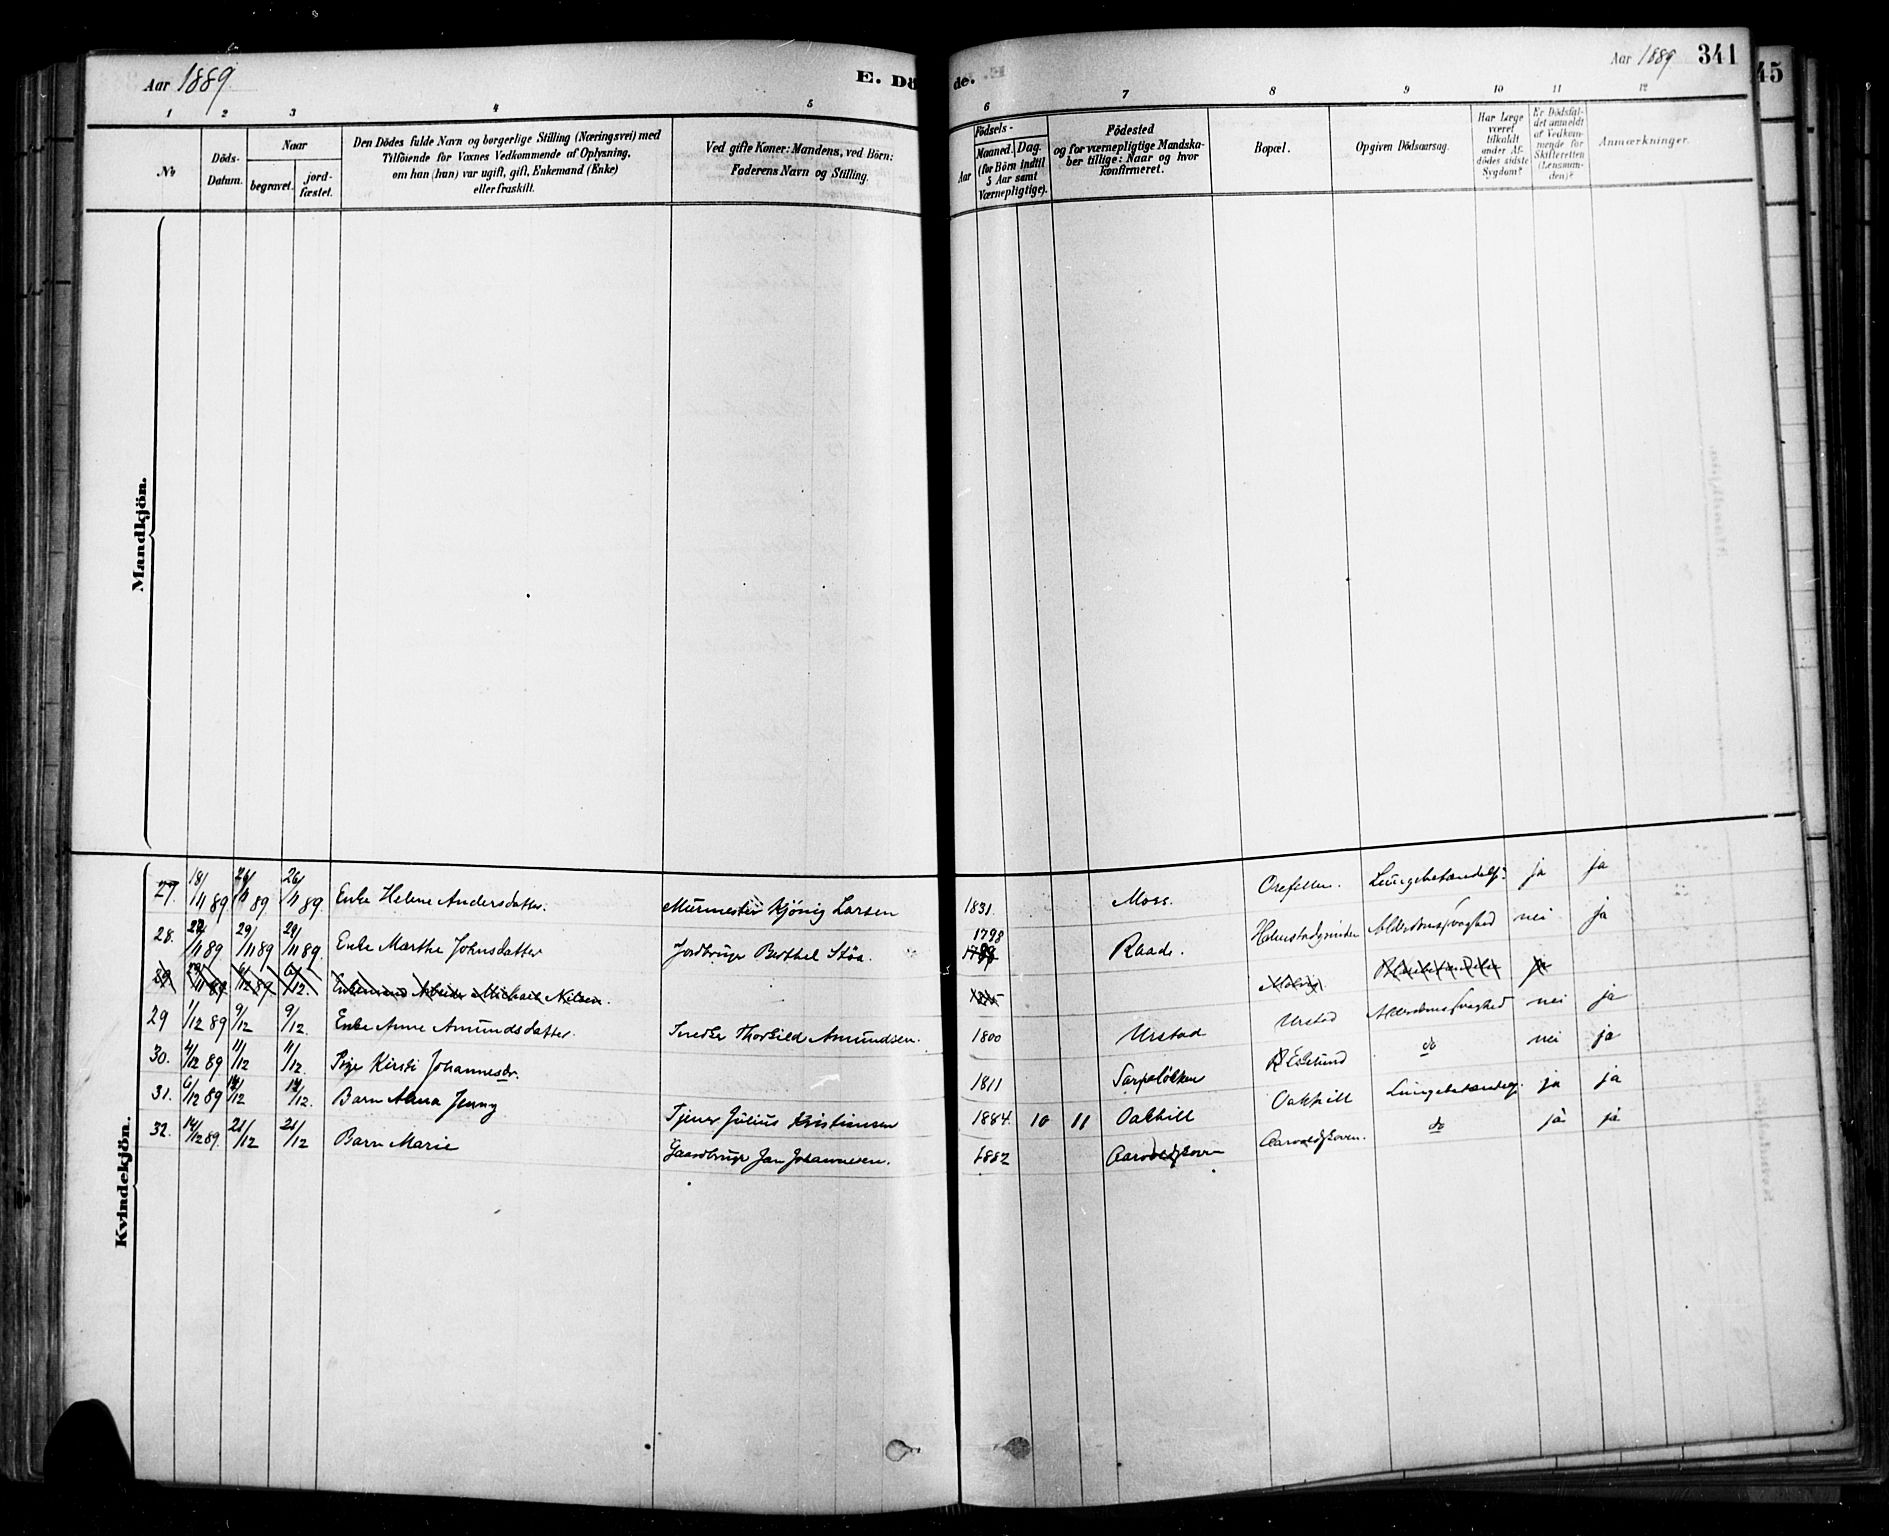 Aar 1889.
E. Dö
de.
Aar 1889
341
45
1 2 3 4 5 6 7 8 9 10 11 12
No
Döds-
Datum.
Naar
begravet.
jord-
fæstet.
Den Dödes fulde Navn og borgerlige Stilling (Næringsvei) med
Tilföiende for Voxnes Vedkommende af Oplysning,
om han (hun) var ugift, gift, Enkemand (Enke)
eller fraskilt.
Ved gifte Koner: Mandens, ved Börn:
Faderens Navn og Stilling.
Födsels-
Aar
Maaned.
Dag.
(for Börn indtil
5 Aar samt
Værnepligtige).
Födested
og for værnepligtige Mandska-
ber tillige: Naar og hvor
konfirmeret.
Bopæl.
Opgiven Dödsaarsag.
Har Læge
været
tilkaldt
under Af-
dödes sidste
Sygdom?
Er Dödsfal-
det anmeldt
af Vedkom-
mende for
Skifteretten
(Lensman-
den)?
Anmærkninger.
Mandkjön.
Kvindekjön.
27. 18/11 89 26/11 89 26/11 89. Enke Helene Andersdatter. Murmester Kjönig Larsen 1831. Moss. Orefellen. Lungebetændelse ja ja
28. 29/11 89 29/11 89. Enke Marthe Johnsdatter Jordbruger Berthel Stöa. 1798 Raade. Holmstadgrinden Alderdomssvaghed nei ja
Enkemand Arbeider Michael Nilsen.
29 1/12 89 9/12 9/12. Enke Anne Amundsdatter. Snedker Thorkild Amundsen. 1800 Urstad Urstad Alderdomssvaghed nei ja
30. 4/12 89 11/12 11/12. Pige Kirsti Johannesdr. 1811 Sarpeløkken Eklund do nei ja
31. 6/12 89 14/12 14/12. Barn Anna Jenny Tjener Julius Kristiansen 1884. 10 11 Oakhill Oakhill Lungebetændelse ja ja
32. 14/12 89. 21/12 21/12 Barn Marie Gaardbruger Jan Johannesen. 1882 Aarvoldskoven Aarvoldskoven. do ja ja